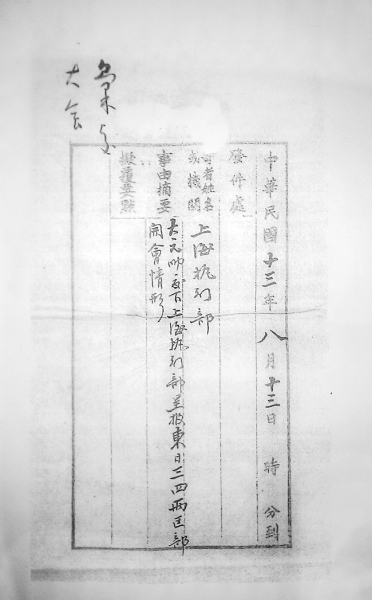 中華民國十三年八月十三日 時 分到
發件處
者姓名
或機關
上海执行部
事由摘要
大元帥交下上海执行部呈报東日三四兩区部
開會情形
擬覆要點
彙交
大会